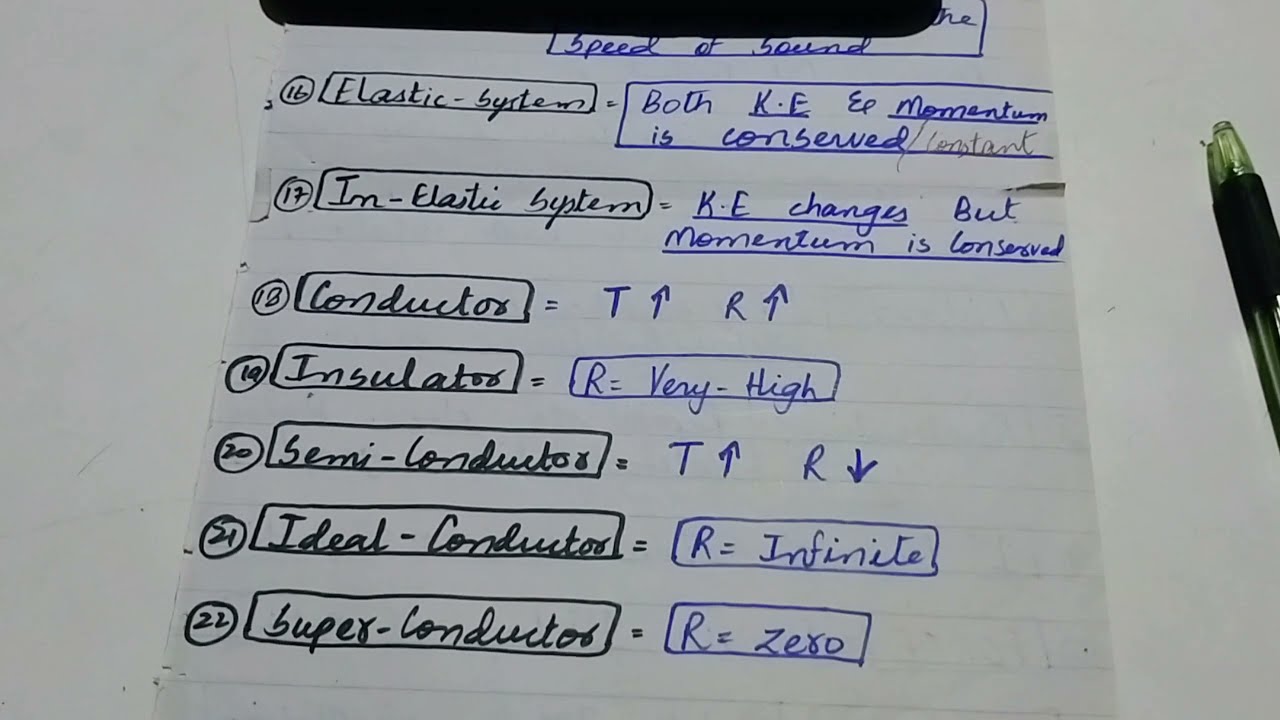 the
Speed of Sound
16 Elastic-System = Both K.E & Momentum
is conserved/Constant
17 In-Elastic System = K.E changes But
Momentum is Conserved
18 Conductor = T ↑ R ↑
19 Insulator = R = Very-High
20 Semi-Conductor = T ↑ R ↓
21 Ideal-Conductor = R = Infinite
22 Super-Conductor = R = Zero